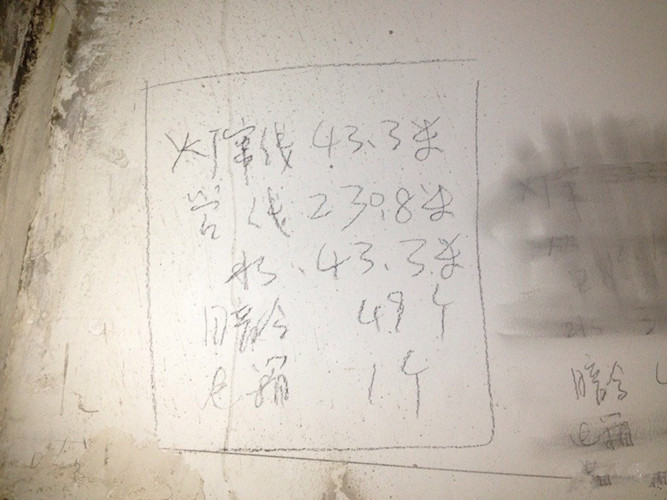 灯牢线 43.3米
管线 230.8米
水 43.3米
暗合 49个
电箱 1个
暗合
电箱